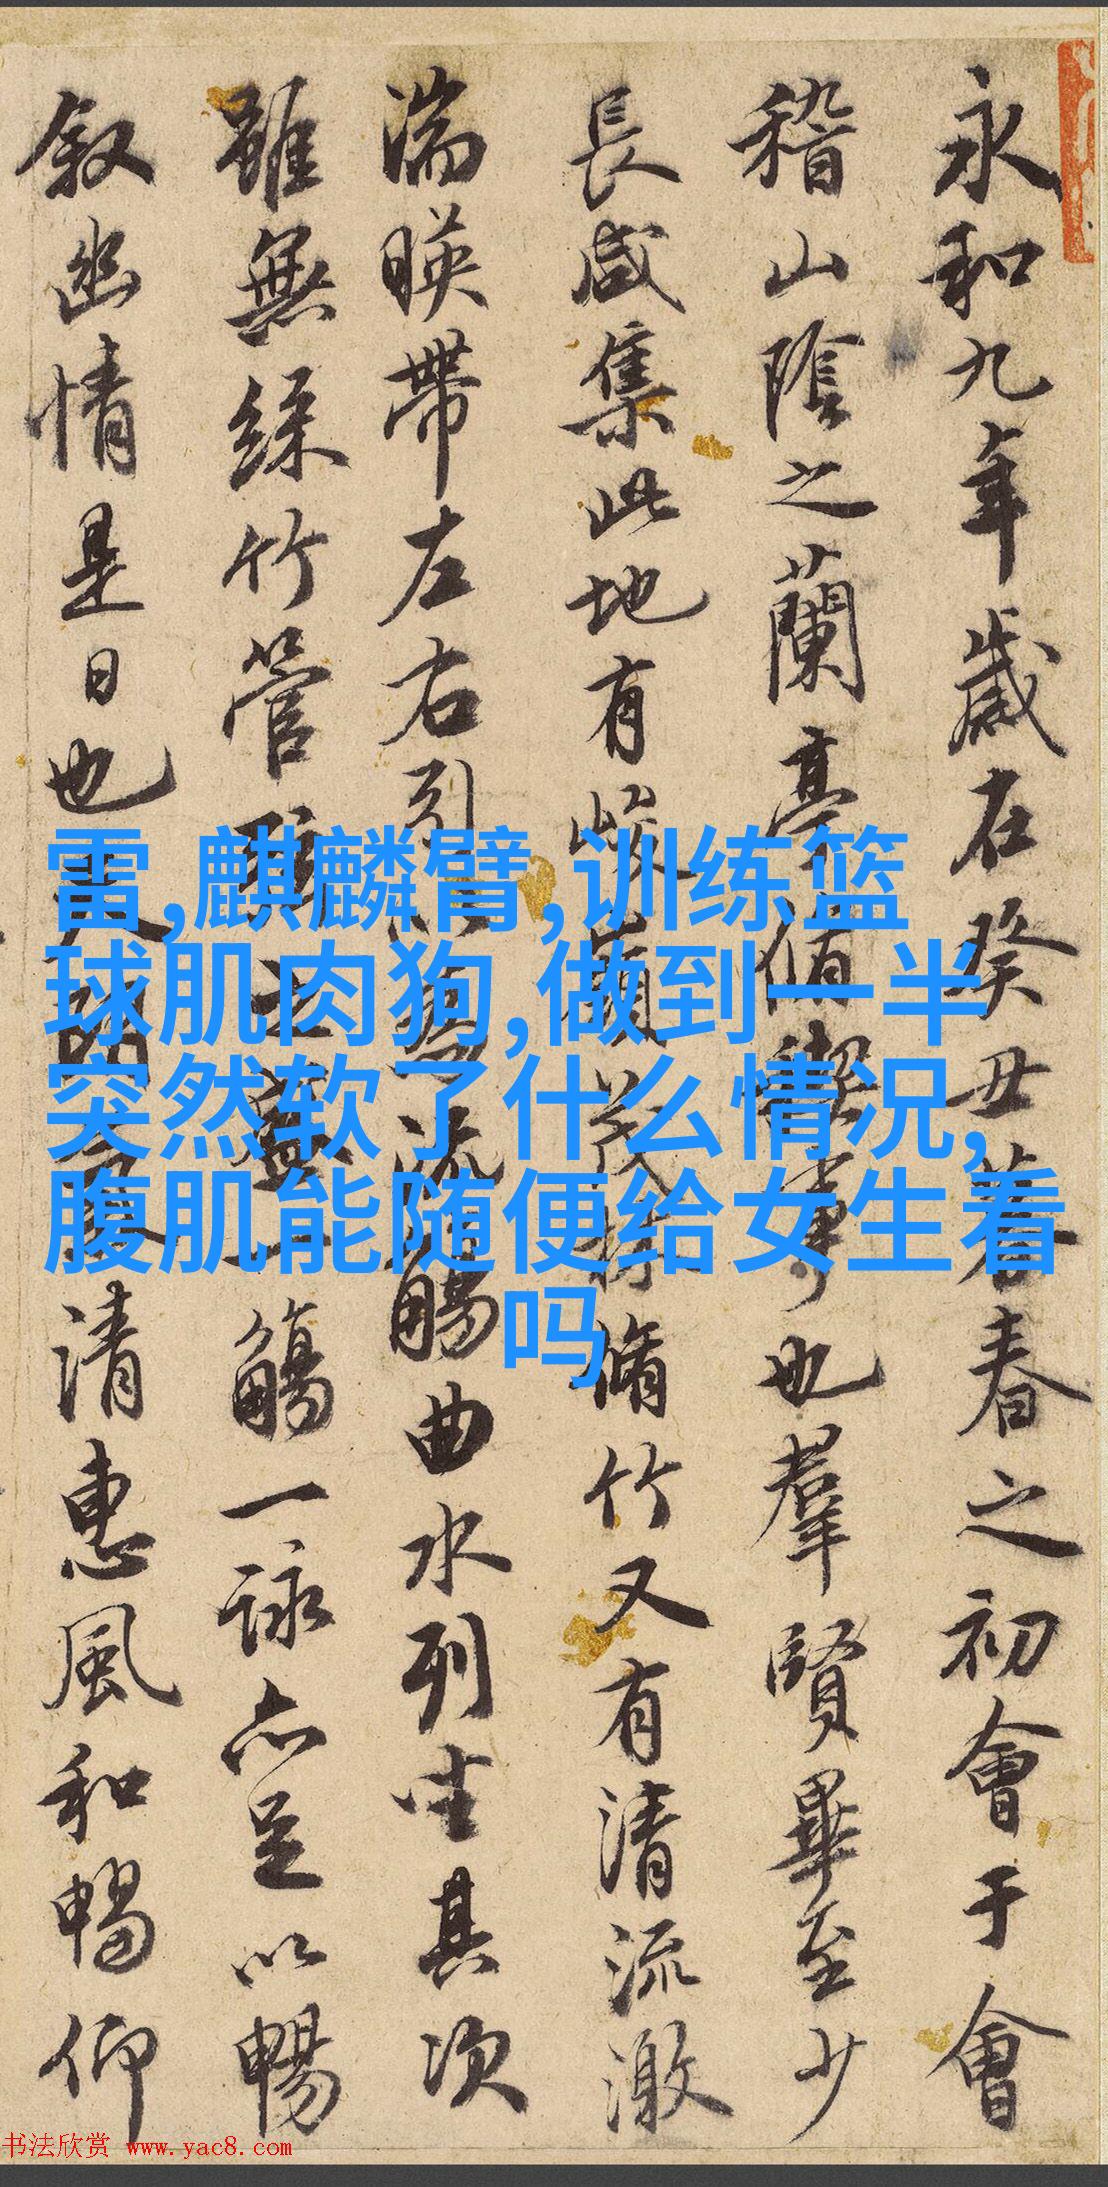 永和九年歲在癸丑暮春之初會于會
稽山陰之蘭亭脩禊事也羣賢畢至少
長咸集此地有峻嶺茂林脩竹又有清流激
湍暎帶左右引以為流觴曲水列坐其次
雖無絲竹管弦之盛一觴一詠亦足以暢
叙幽情是日也天朗氣清惠風和暢仰
雷,麒麟臂,训练篮
球肌肉狗,做到一半
突然软了什么情况,
腹肌能随便给女生看
吗
书法欣赏 www.yac8.com